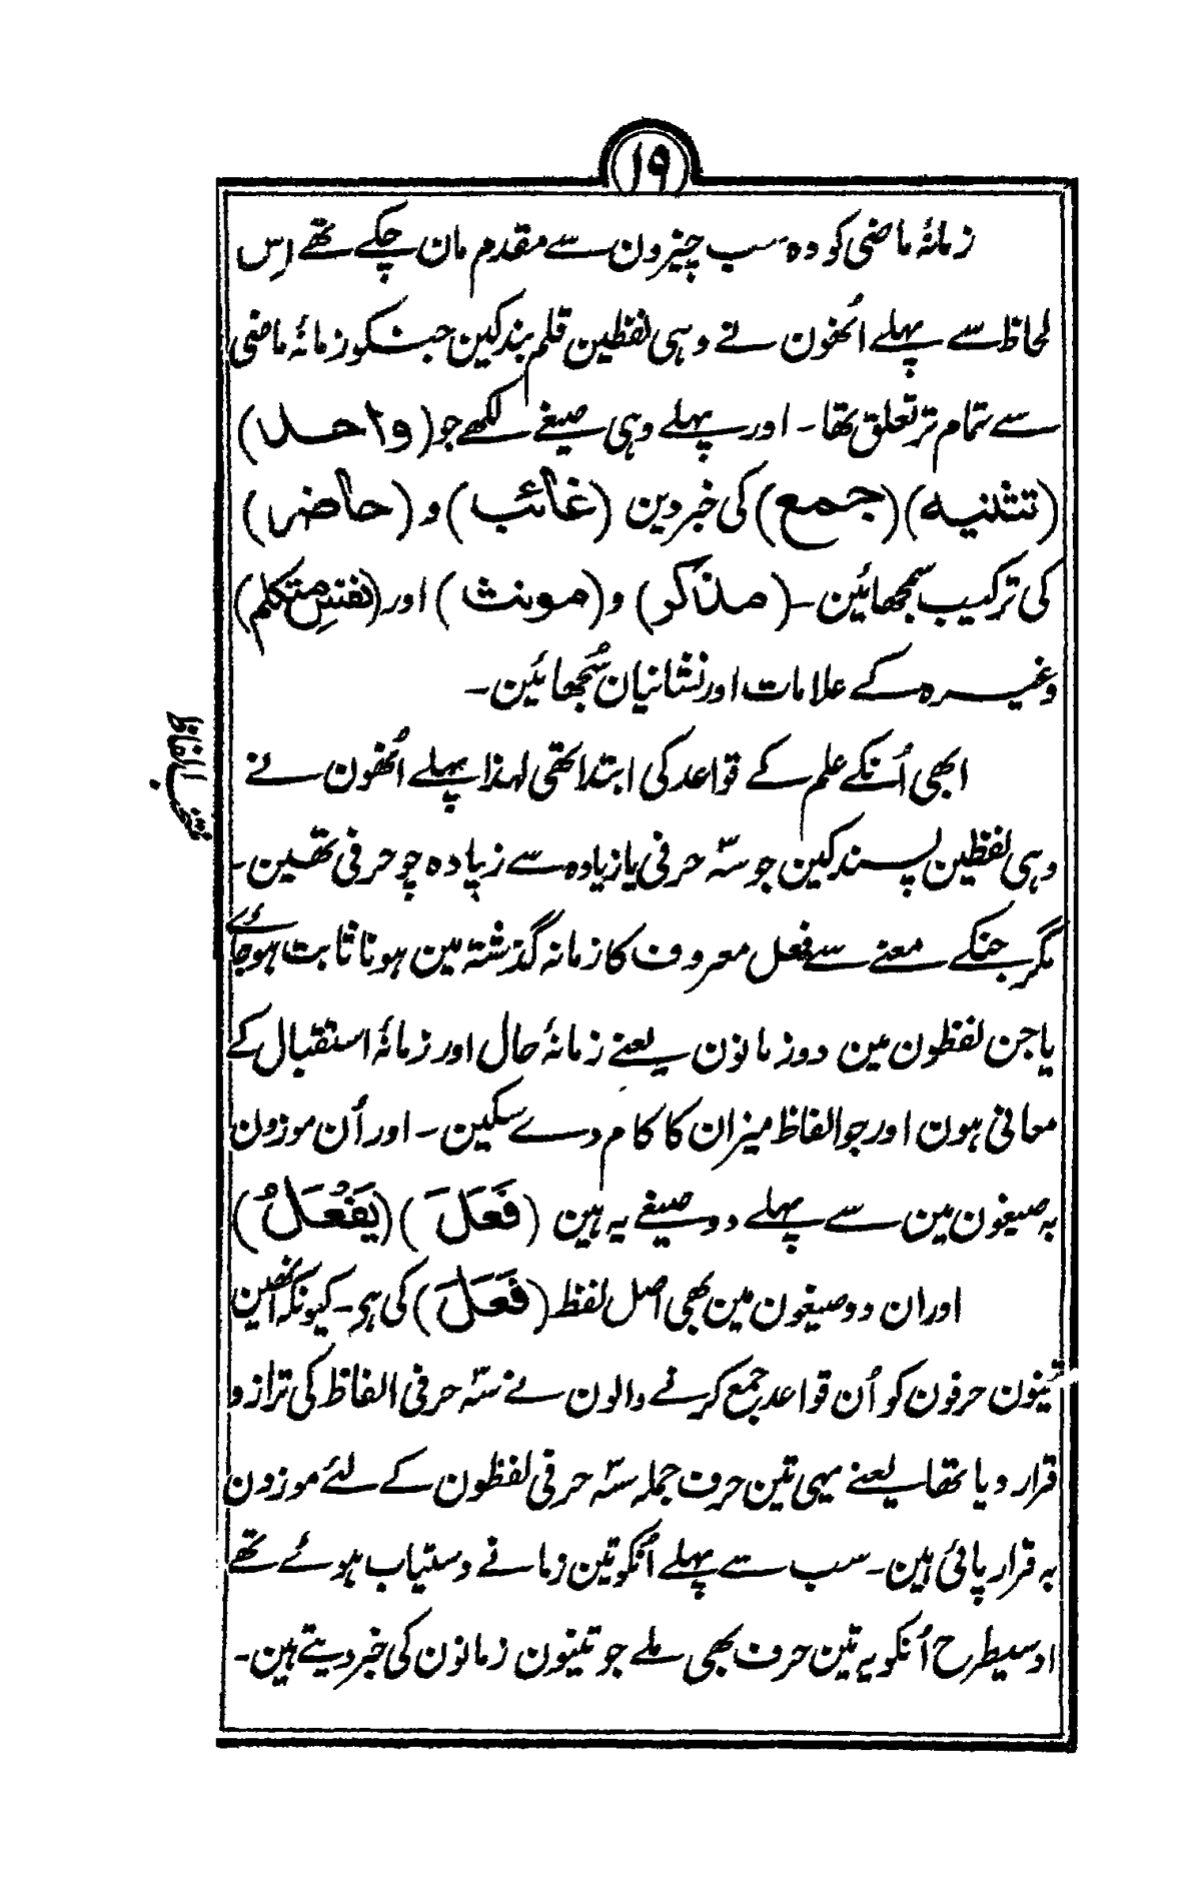 ۱۹
زمانۂ ماضی کو وہ سب چیزون سے مقدم مان چکے تھے اِس
لحاظ سے پہلے اُنھون نے وہی لفظین قلم بند کین جنکو زمانۂ ماضی
سے تمام تر تعلق تھا۔ اور پہلے وہی صیغے لکھے جو (واحد)
(تثنیہ) (جمع) کی خبر دین (غائب) و (حاضر)
کی ترکیب سمجھائین۔ (مذکر) و (مونث) اور (نفس متکلم)
وغیرہ کے علامات اور نشانیان سُجھائین۔
ابھی اُنکے علم کے قواعد کی ابتدا تھی لہذا پہلے اُنھون نے
وہی لفظین پسند کین جو سہ حرفی یا زیادہ سے زیادہ چو حرفی تھین۔
مگر جنکے معنے سے فعل معروف کا زمانہ گذشتہ مین ہونا ثابت ہوجائے
یا جن لفظون مین دو زمانون یعنے زمانۂ حال اور زمانۂ استقبال کے
معانی ہون اور جو الفاظ میزان کا کام دے سکین۔ اور اُن موزون
بہ صیغون مین سے پہلے دو صیغے یہ ہین (فَعَلَ) (یَفْعَلُ)
اور ان دو صیغون مین بھی اصل لفظ (فَعَلَ) کی ہی۔ کیونکہ انھین
تینون حرفون کو اُن قواعد جمع کرنے والون نے سہ حرفی الفاظ کی ترازو
قرار دیا تھا یعنے یہی تین حرف جملہ سہ حرفی لفظون کے لئے موزون
بہ قرار پائی ہین۔ سب سے پہلے اُنکو تین زمانے دستیاب ہوئے تھے
اوسیطرح اُنکو یہ تین حرف بھی ملے جو تینون زمانون کی خبر دیتے ہین۔
الفاظ